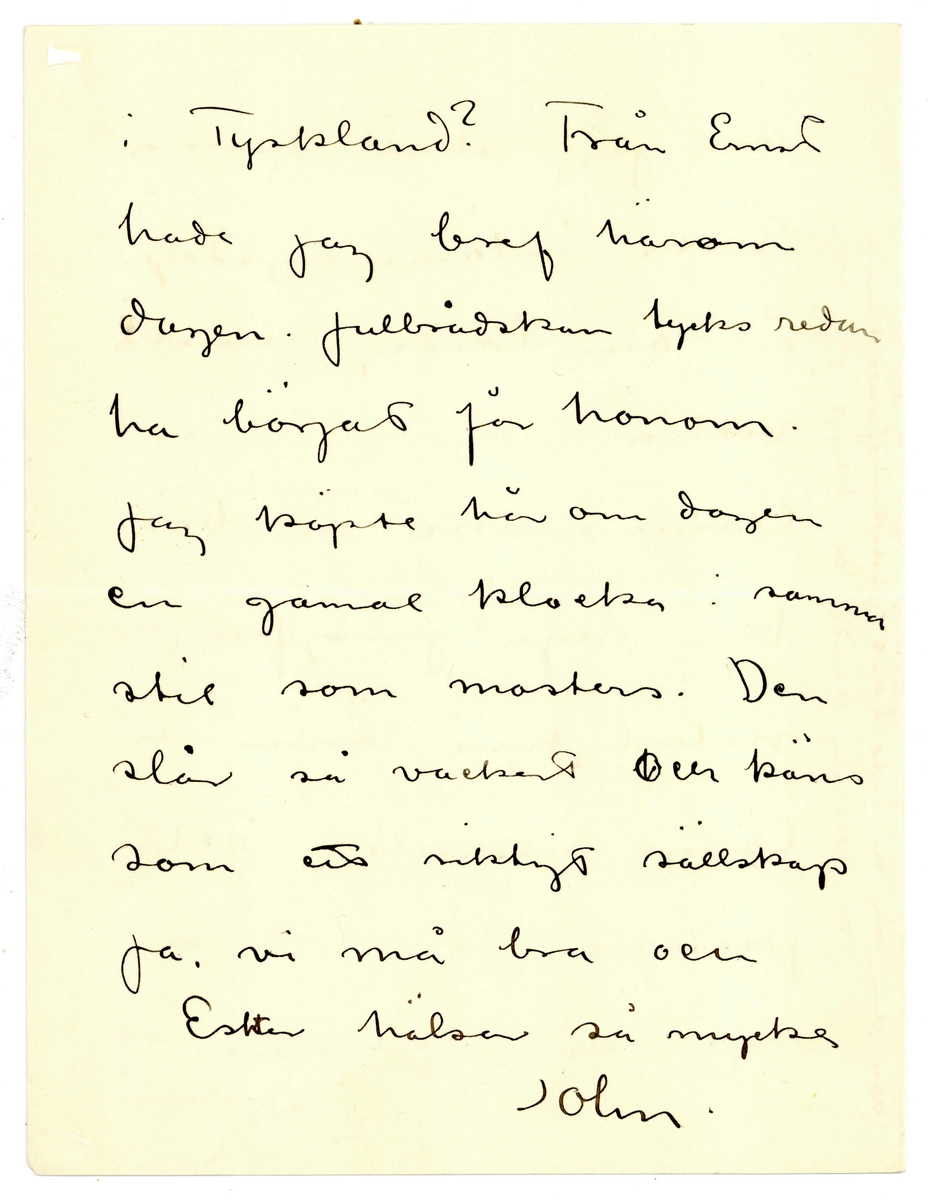 i Tyskland? Från Ernst
hade jag bref härom
dagen. Julbrådskan tycks redan
ha börjat för honom.
Jag köpte här om dagen
en gamal klocka i samma
stil som mosters. Den
slår så vackert och käns
som ett riktigt sällskap
Ja, vi må bra och
Ester hälsar så mycket
John.